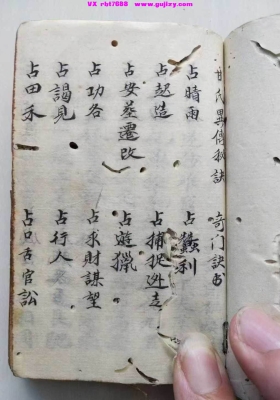 VX rbt7888 www.gujizy.com
甘氏異傳秘訣 奇门訣
占晴雨 占蠶利
占起造 占捕捉逃走
占安葬遷改 占遊獵
占功名 占求財謀望
占謁見 占行人
占田禾 占口舌官訟